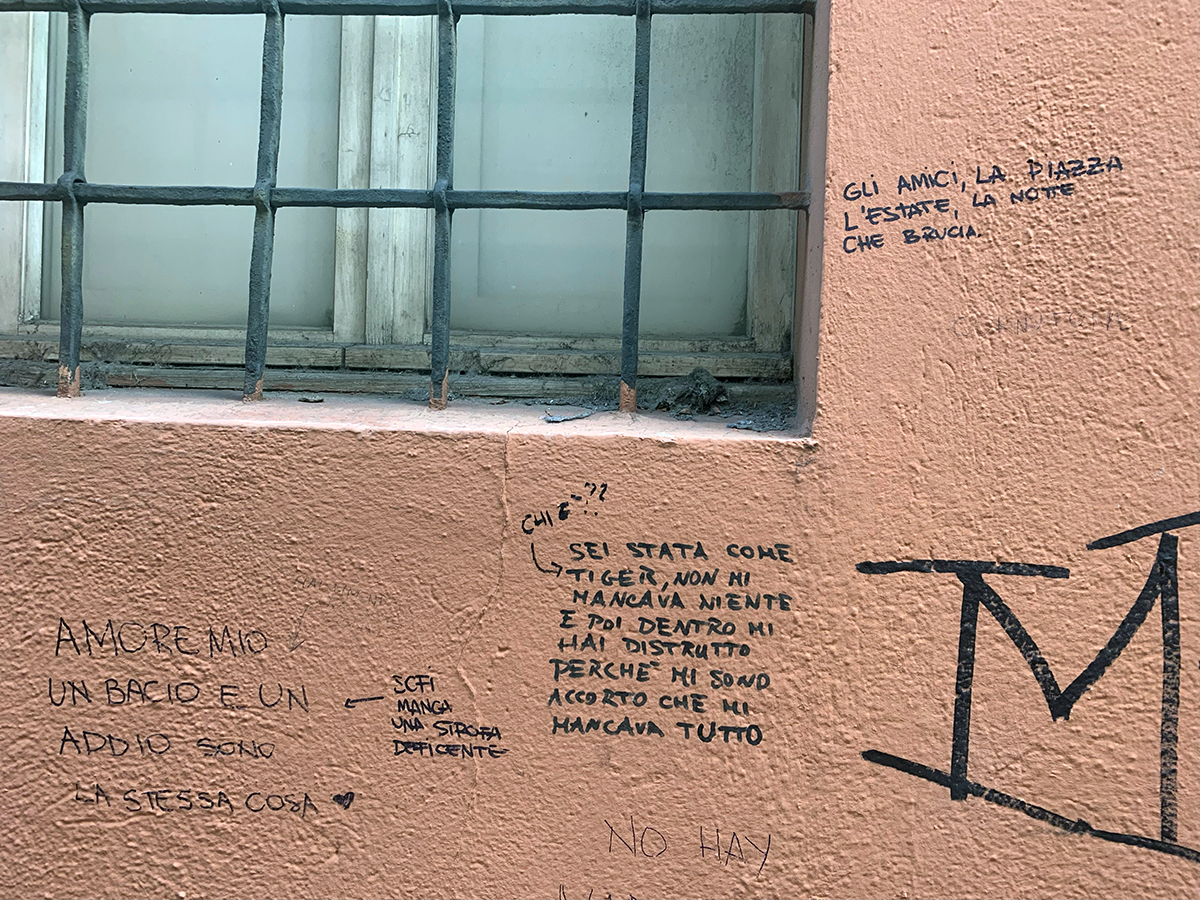 GLI AMICI, LA PIAZZA
L'ESTATE, LA NOTTE
CHE BRUCIA.
CHI È??
SEI STATA COME
TIGER, NON MI
MANCAVA NIENTE
E POI DENTRO MI
HAI DISTRUTTO
PERCHÈ MI SONO
ACCORTO CHE MI
MANCAVA TUTTO
AMORE MIO
UN BACIO E UN
ADDIO SONO
LA STESSA COSA
MANCA
UNA STROFA
DEFICENTE
M
NO HAY